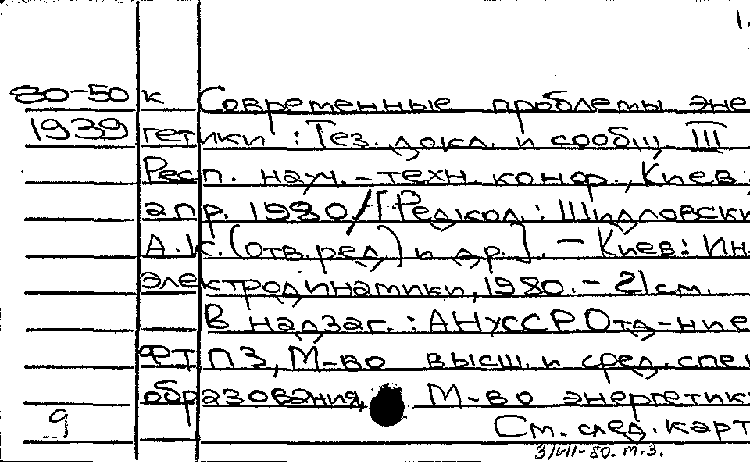 1.
80-50 к Современные проблемы эне
1939 гетики : Тез. докл. и сообщ. III
Респ. науч.-техн. конф., Киев,
апр. 1980 / [Редкол.: Шидловски
А.К. (отв. ред.) и др.]. - Киев: Ин-
электродинамики, 1980. - 21 см.
В надзаг.: АН УССР Отд-ние
ФТПЭ, М-во высш. и сред. спец
образования, М-во энергетик
9 См. след. карт
3/VII-80. м.з.